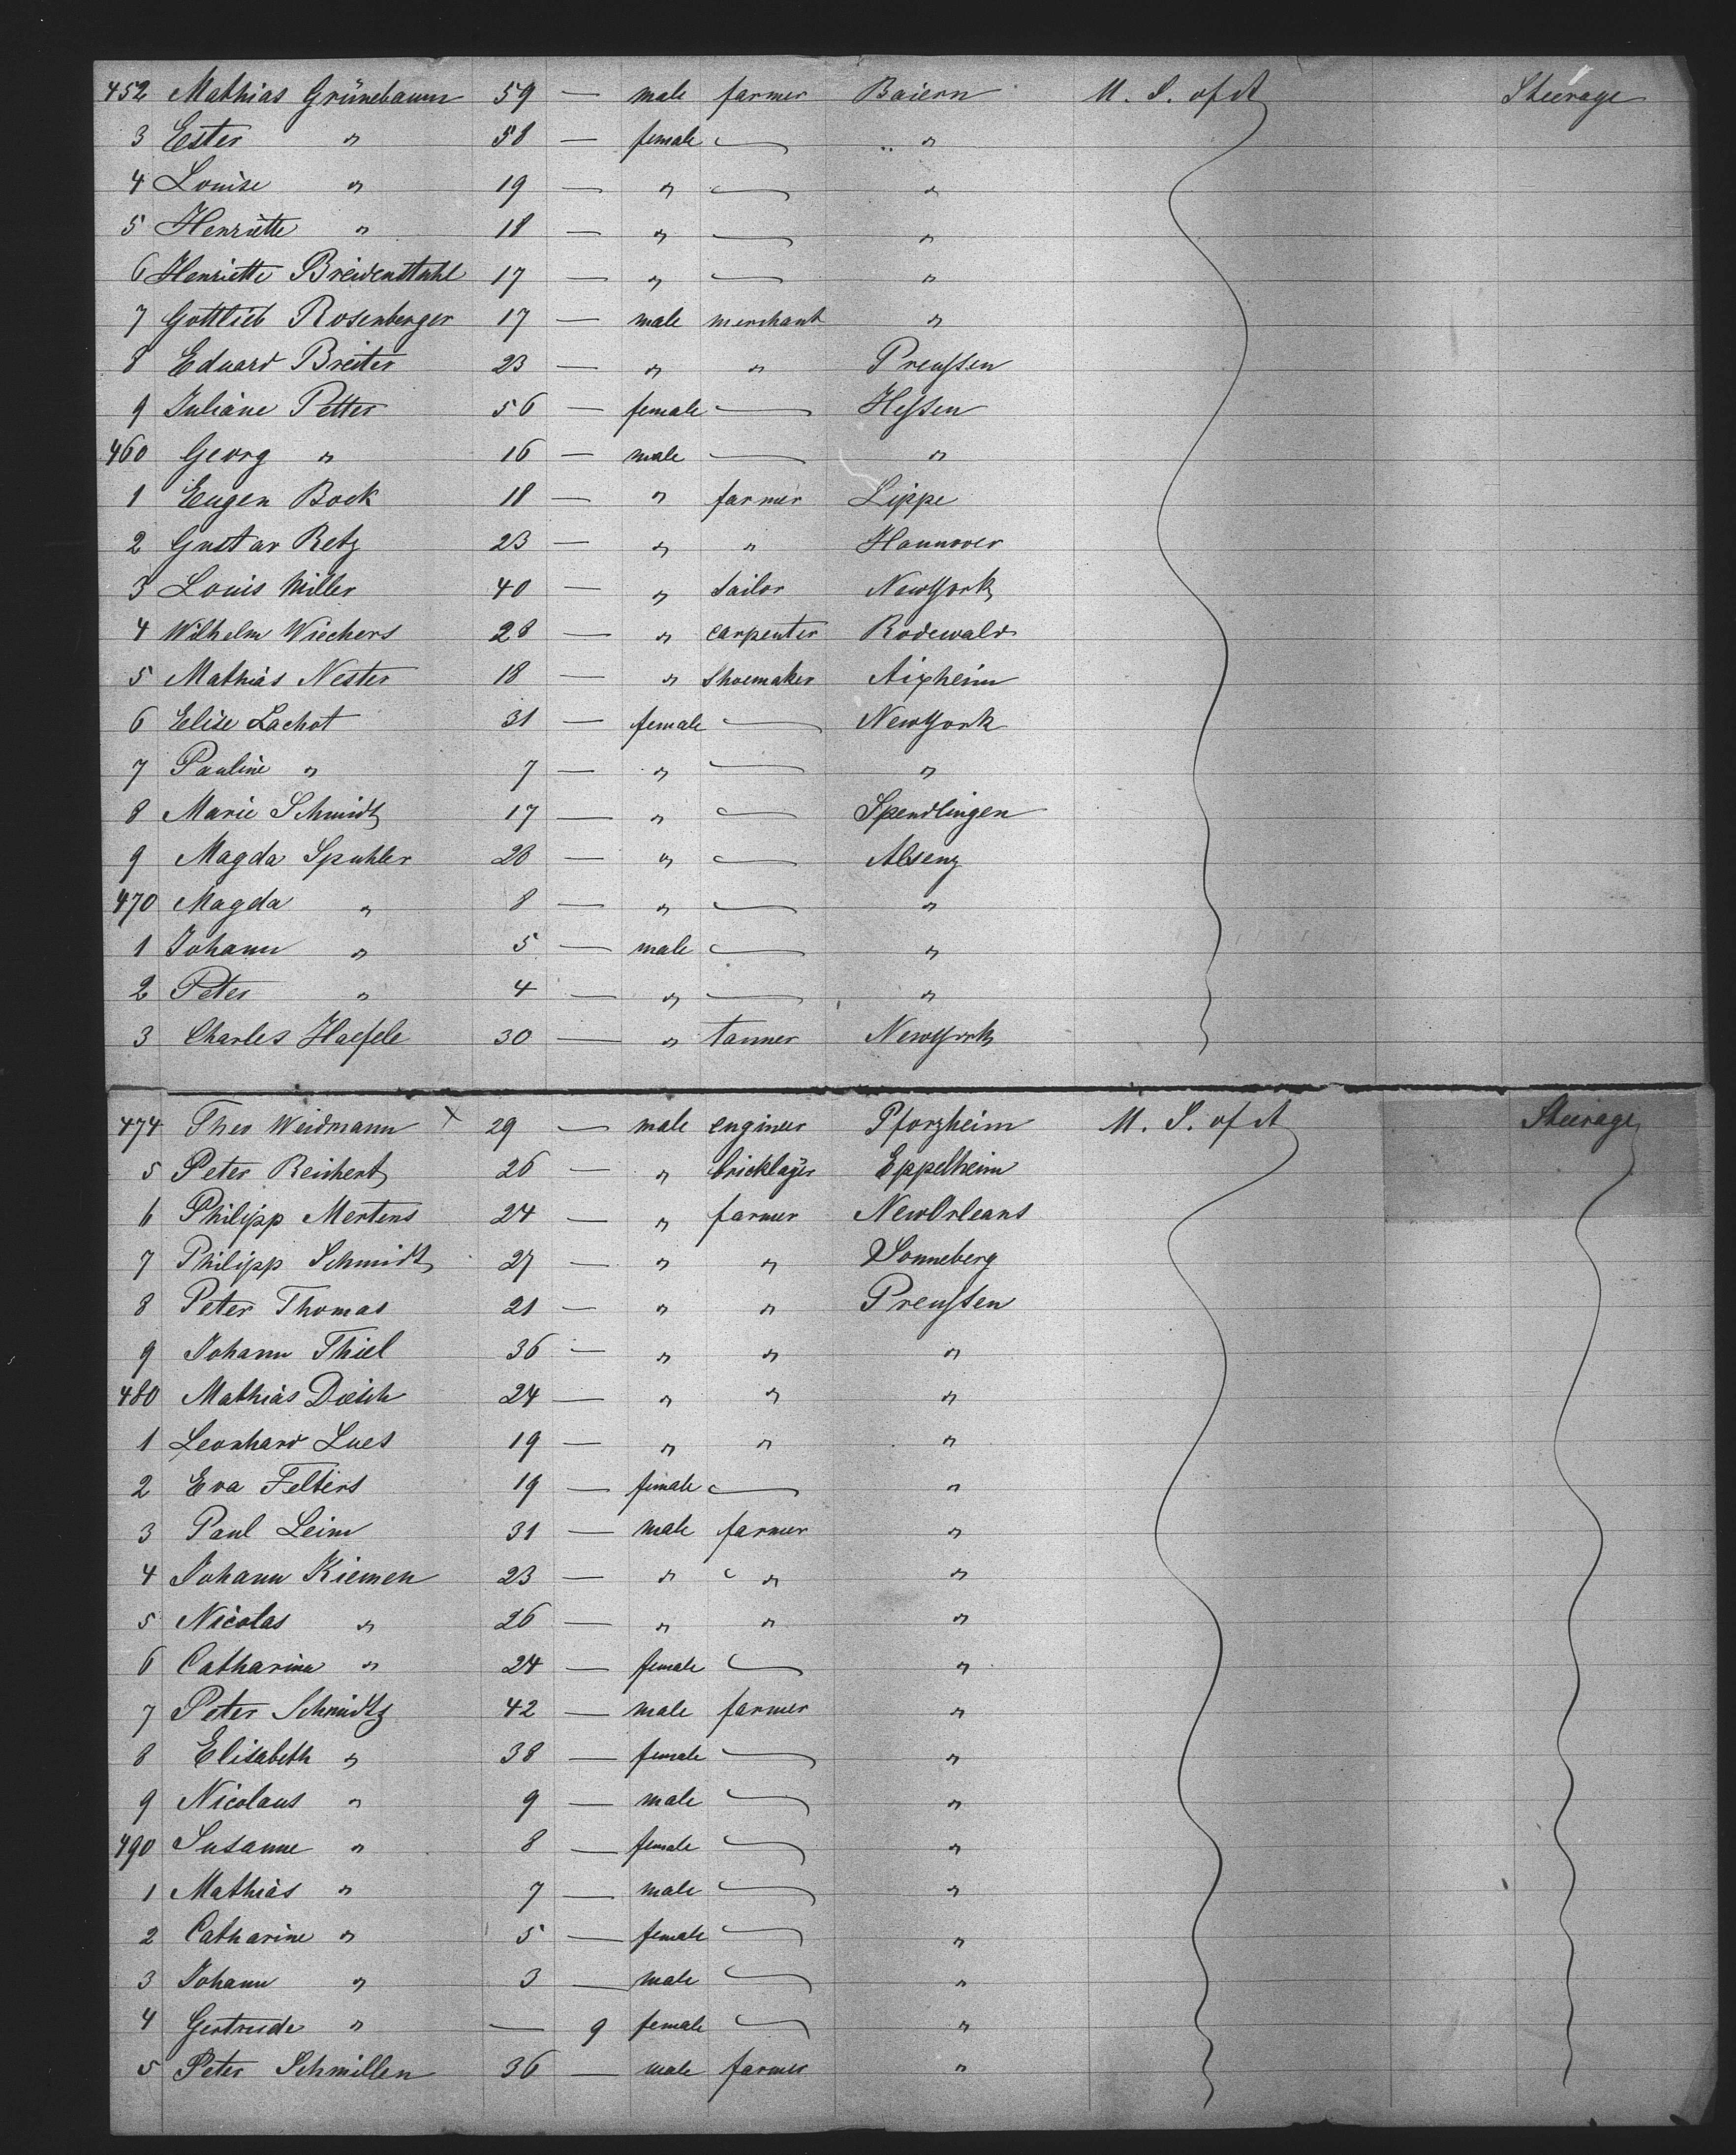 452 Mathias Grünebaum 59 — male farmer Baiern U. S. of A Steerage
3 Ester " 58 — female — "
4 Louise " 19 — " — "
5 Henriette " 18 — " — "
6 Henriette Breidenstahl 17 — " — "
7 Gottlieb Rosenberger 17 — male merchant "
8 Eduard Breiter 23 — " " Preussen
9 Juliane Petter 56 — female — Hessen
460 Georg " 16 — male — "
1 Eugen Bock 18 — " farmer Lippe
2 Gustav Retz 23 — " " Hannover
3 Louis Miller 40 — " tailor NewYork
4 Wilhelm Wiechers 28 — " carpenter Rodewald
5 Mathias Nester 18 — " Shoemaker Aixheim
6 Elise Lachot 31 — female — NewYork
7 Pauline " 7 — " — "
8 Marie Schmidt 17 — " — Spendlingen
9 Magda Spuhler 28 — " — Alsenz
470 Magda " 8 — " — "
1 Johann " 5 — male — "
2 Peter " 4 — " — "
3 Charles Haefele 30 — " tanner NewYork
474 Theo Weidmann x 29 — male engineer Pforzheim U. S. of A Steerage
5 Peter Reichert 26 — " bricklayer Eppelheim
6 Philipp Mertens 24 — " farmer NewOrleans
7 Philipp Schmidt 27 — " " Sonneberg
8 Peter Thomas 21 — " " Preussen
9 Johann Thiel 36 — " " "
480 Mathias Diesch 24 — " " "
1 Leonhard Lues 19 — " " "
2 Eva Felters 19 — female — "
3 Paul Leim 31 — male farmer "
4 Johann Kiemen 23 — " " "
5 Nicolas " 26 — " " "
6 Catharina " 24 — female — "
7 Peter Schmidtz 42 — male farmer "
8 Elisabeth " 38 — female — "
9 Nicolaus " 9 — male — "
490 Susanne " 8 — female — "
1 Mathias " 7 — male — "
2 Catharine " 5 — female — "
3 Johann " 3 — male — "
4 Gertrude " — 9 female — "
5 Peter Schmillen 36 — male farmer "